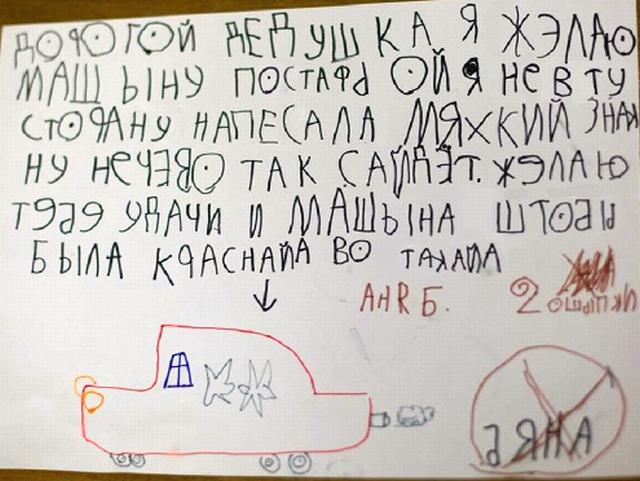 ДОРОГОЙ ДЕДУШКА Я ЖЭЛАЮ
МАШЫНУ ПОСТАФЬ ОЙ Я НЕ В ТУ
СТОРАНУ НАПЕСАЛА МЯХКИЙ ЗНАК
НУ НЕЧЕВО ТАК САЙДЁТ. ЖЭЛАЮ
ТЭБЭ УДАЧИ И МАШЫНА ШТОБЫ
БЫЛА КРАСНАЙА ВО ТАКАЙА
АНЯ Б.
2 ОШЫПКИ
Ь ЯНА